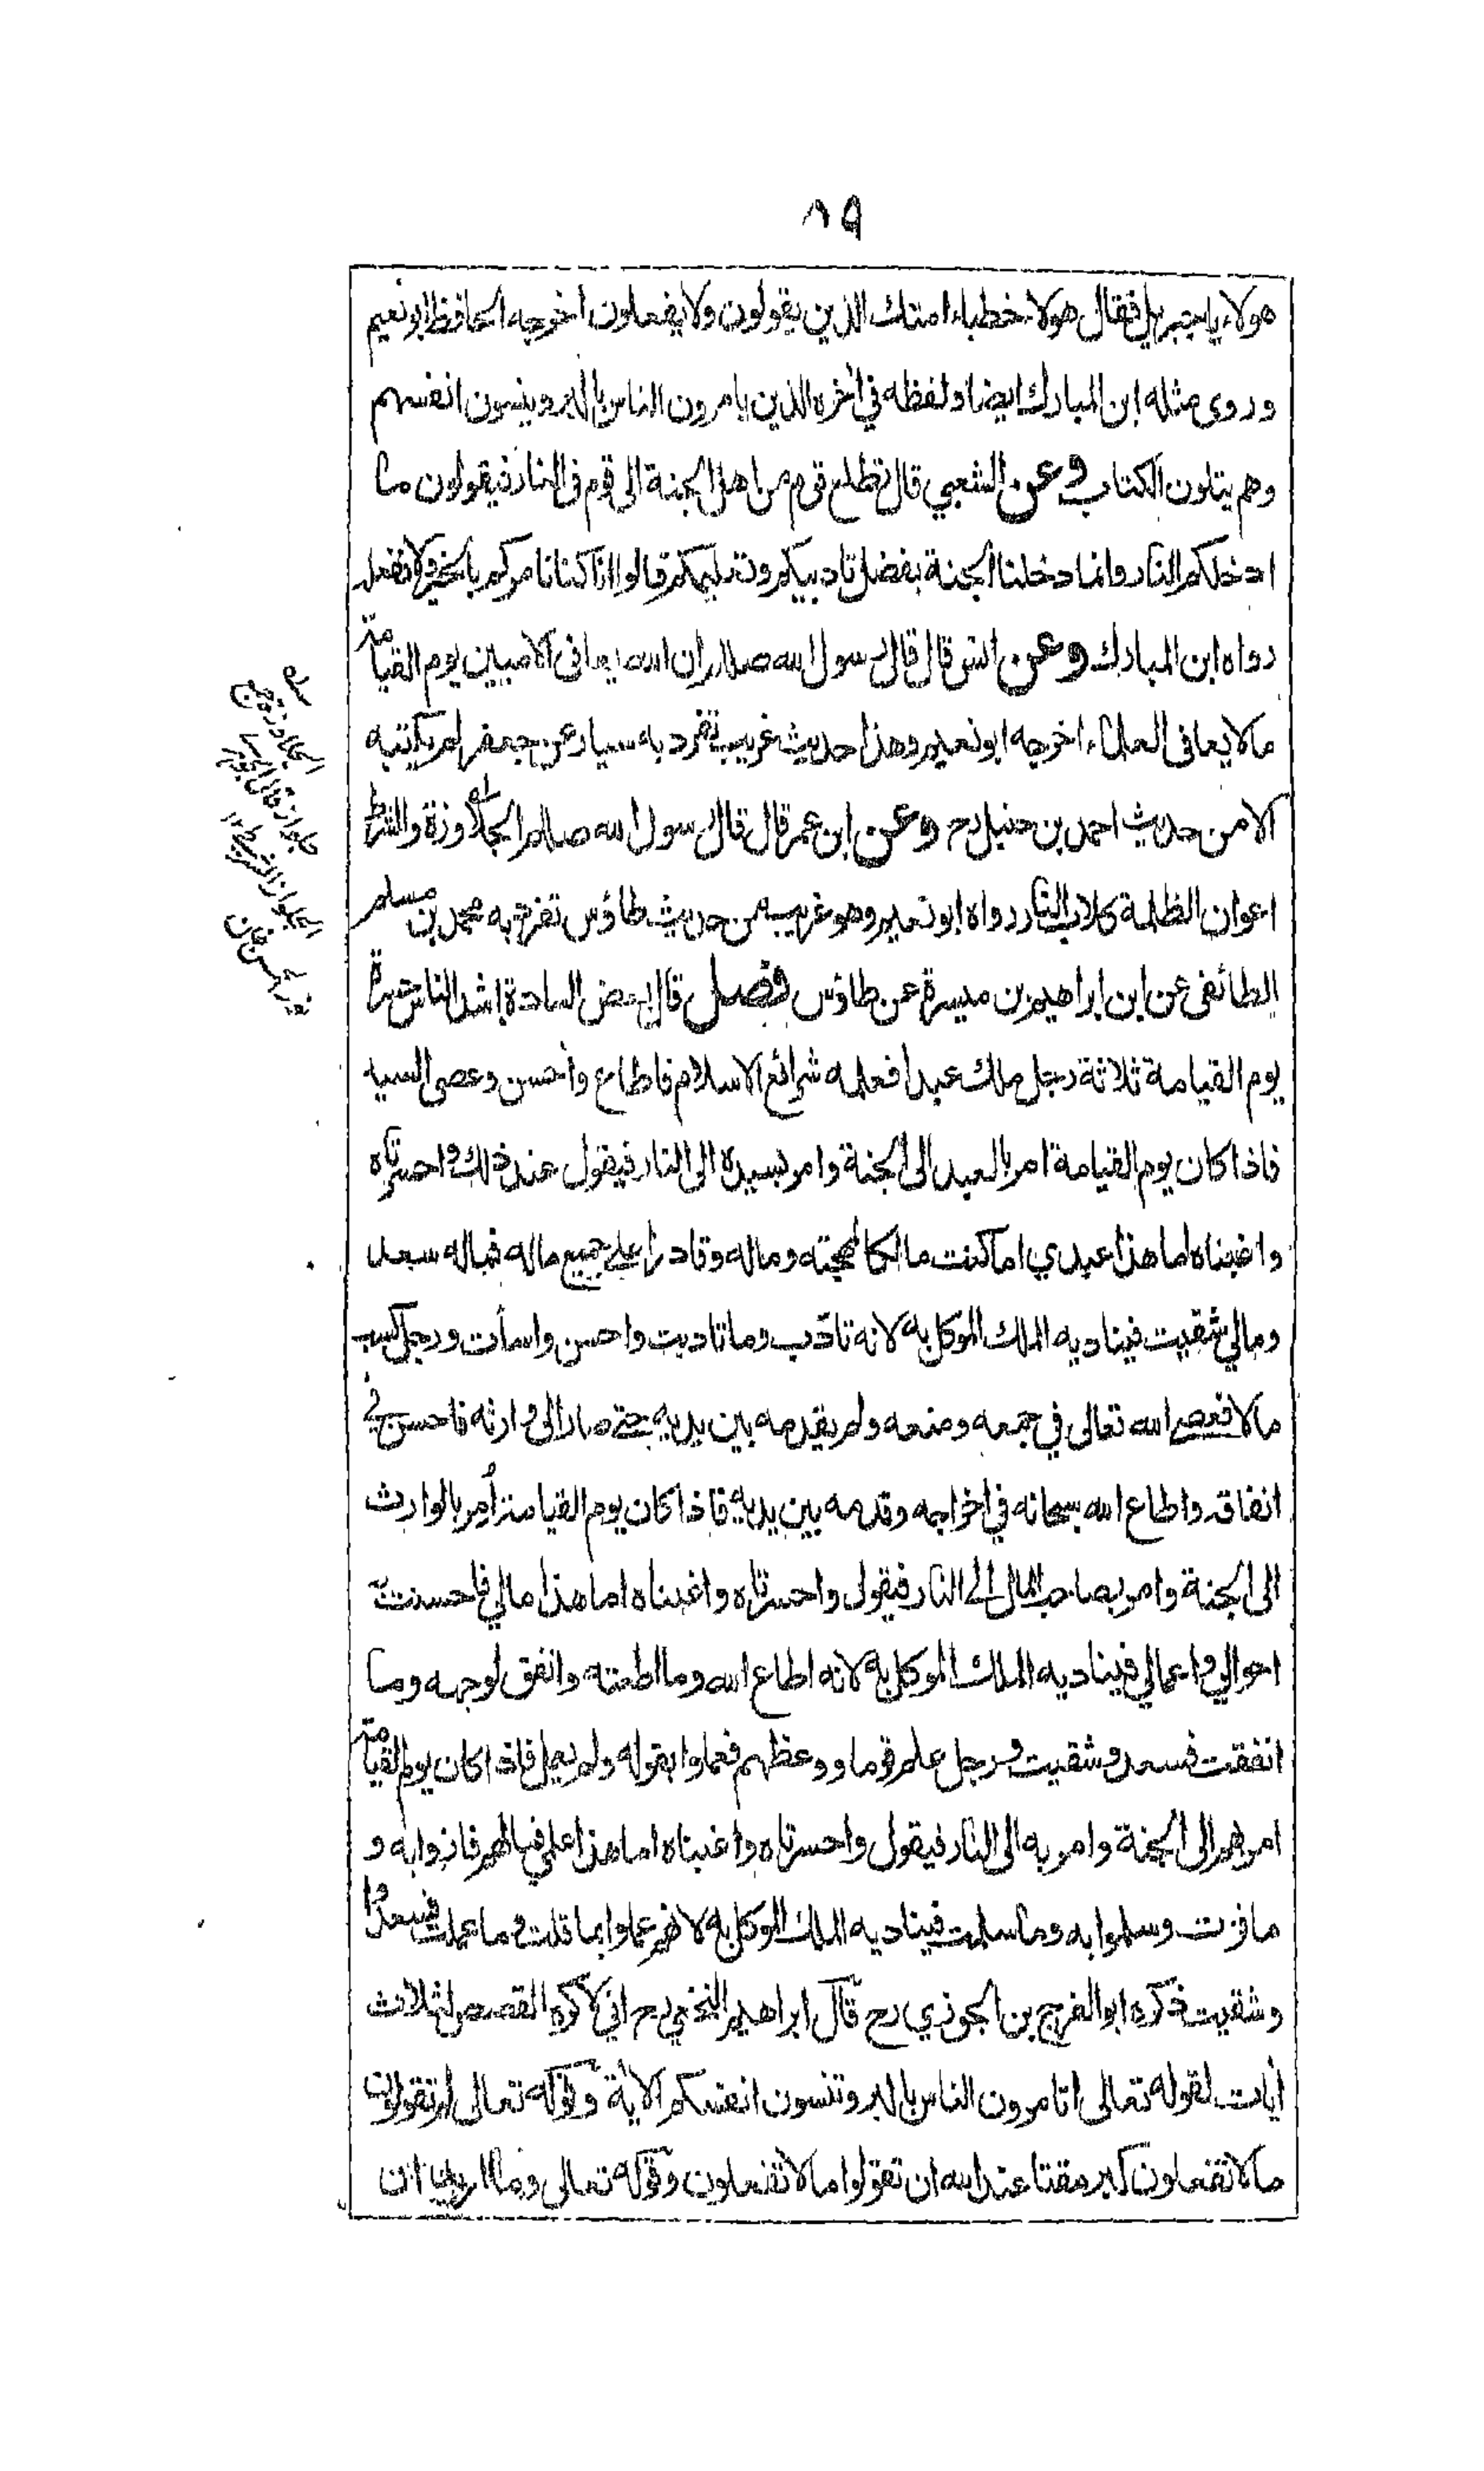 ٨٩
هولاء ياجبريل فقال هولاء خطباء امتك الذين يقولون ولا يفعلون اخرجه الحافظ ابو نعيم
وروى مثله ابن المبارك ايضا ولفظه في أخره الذين يامرون الناس بالبر وينسون انفسهم
وهم يتلون الكتاب وعن الشعبي قال تطلع قوم من اهل الجنة الى قوم فى النار فيقولون ما
ادخلكم النار وانما دخلنا الجنة بفضل تاديبكم وتعليمكم قالوا انا كنا نامركم بالخير ولا نفعل
رواه ابن المبارك وعن انس قال قال رسول الله صللم ان الله يعافى الاميين يوم القيامة
مالا يعافى العلماء اخرجه ابو نعيم وهذا حديث غريب تفرد به سيار عن جعفر لم نكتبه
الا من حديث احمد بن حنبل رح وعن ابن عمر قال قال رسول الله صللم الجلاوزة والشرط
اعوان الظلمة كلاب النار رواه ابو نعيم وهو غريب من حديث طاؤس تفرد به محمد بن مسلم
الطائفى عن ابن ابراهيم بن ميسرة عن طاؤس فصل قال بعض السادة اشد الناس حسرة
يوم القيامة ثلاثة رجل ملك عبدا فعلمه شرائع الاسلام فاطاع وأحسن وعصى السيد
فاذا كان يوم القيامة امر بالعبد الى الجنة وامر بسيده الى النار فيقول عند ذلك واحسرتاه
واغبناه اما هذا عبدي اما كنت مالكا لمهجته وماله وقادرا على جميع ماله فماله سعد
ومالي شقيت فيناديه الملك الموكل به لانه تادّب وما تاديت واحسن واسأت ورجل كسب
مالا فعصى الله تعالى في جمعه ومنعه ولم يقدمه بين يديه حتى صار الى وارثه فاحسن في
انفاقه واطاع الله سبحانه في اخراجه وقدمه بين يديه فاذا كان يوم القيامة أمر بالوارث
الى الجنة وامر بصاحب المال الى النار فيقول واحسرتاه واغبناه اما هذا مالي فاحسنت
احوالي واعمالي فيناديه الملك الموكل به لانه اطاع الله وما اطعته وانفق لوجهه وما
انفقت فسعد وشقيت ورجل علم قوما ووعظهم فعملوا بقوله ولم يعمل فاذا كان يوم القيامة
امر بهم الى الجنة وامر به الى النار فيقول واحسرتاه واغبناه اما هذا علمي فمالهم فازوا به و
ما فزت وسلموا به وما سلمت فيناديه الملك الموكل به لانهم عملوا بما قلت وما عملت فسعدوا
وشقيت ذكره ابو الفرج بن الجوزي رح قال ابراهيم النخعي رح اني لاكره القصص لثلاث
أيات لقوله تعالى اتامرون الناس بالبر وتنسون انفسكم الاية وقوله تعالى لم تقولون
مالا تفعلون كبر مقتا عند الله ان تقولوا مالا تفعلون وقوله تعالى وما اريد ان
الجلاوزة جمع
جلواز قال الجوهرى
الجلواز الشرطى ١٢
نور الحسن خان